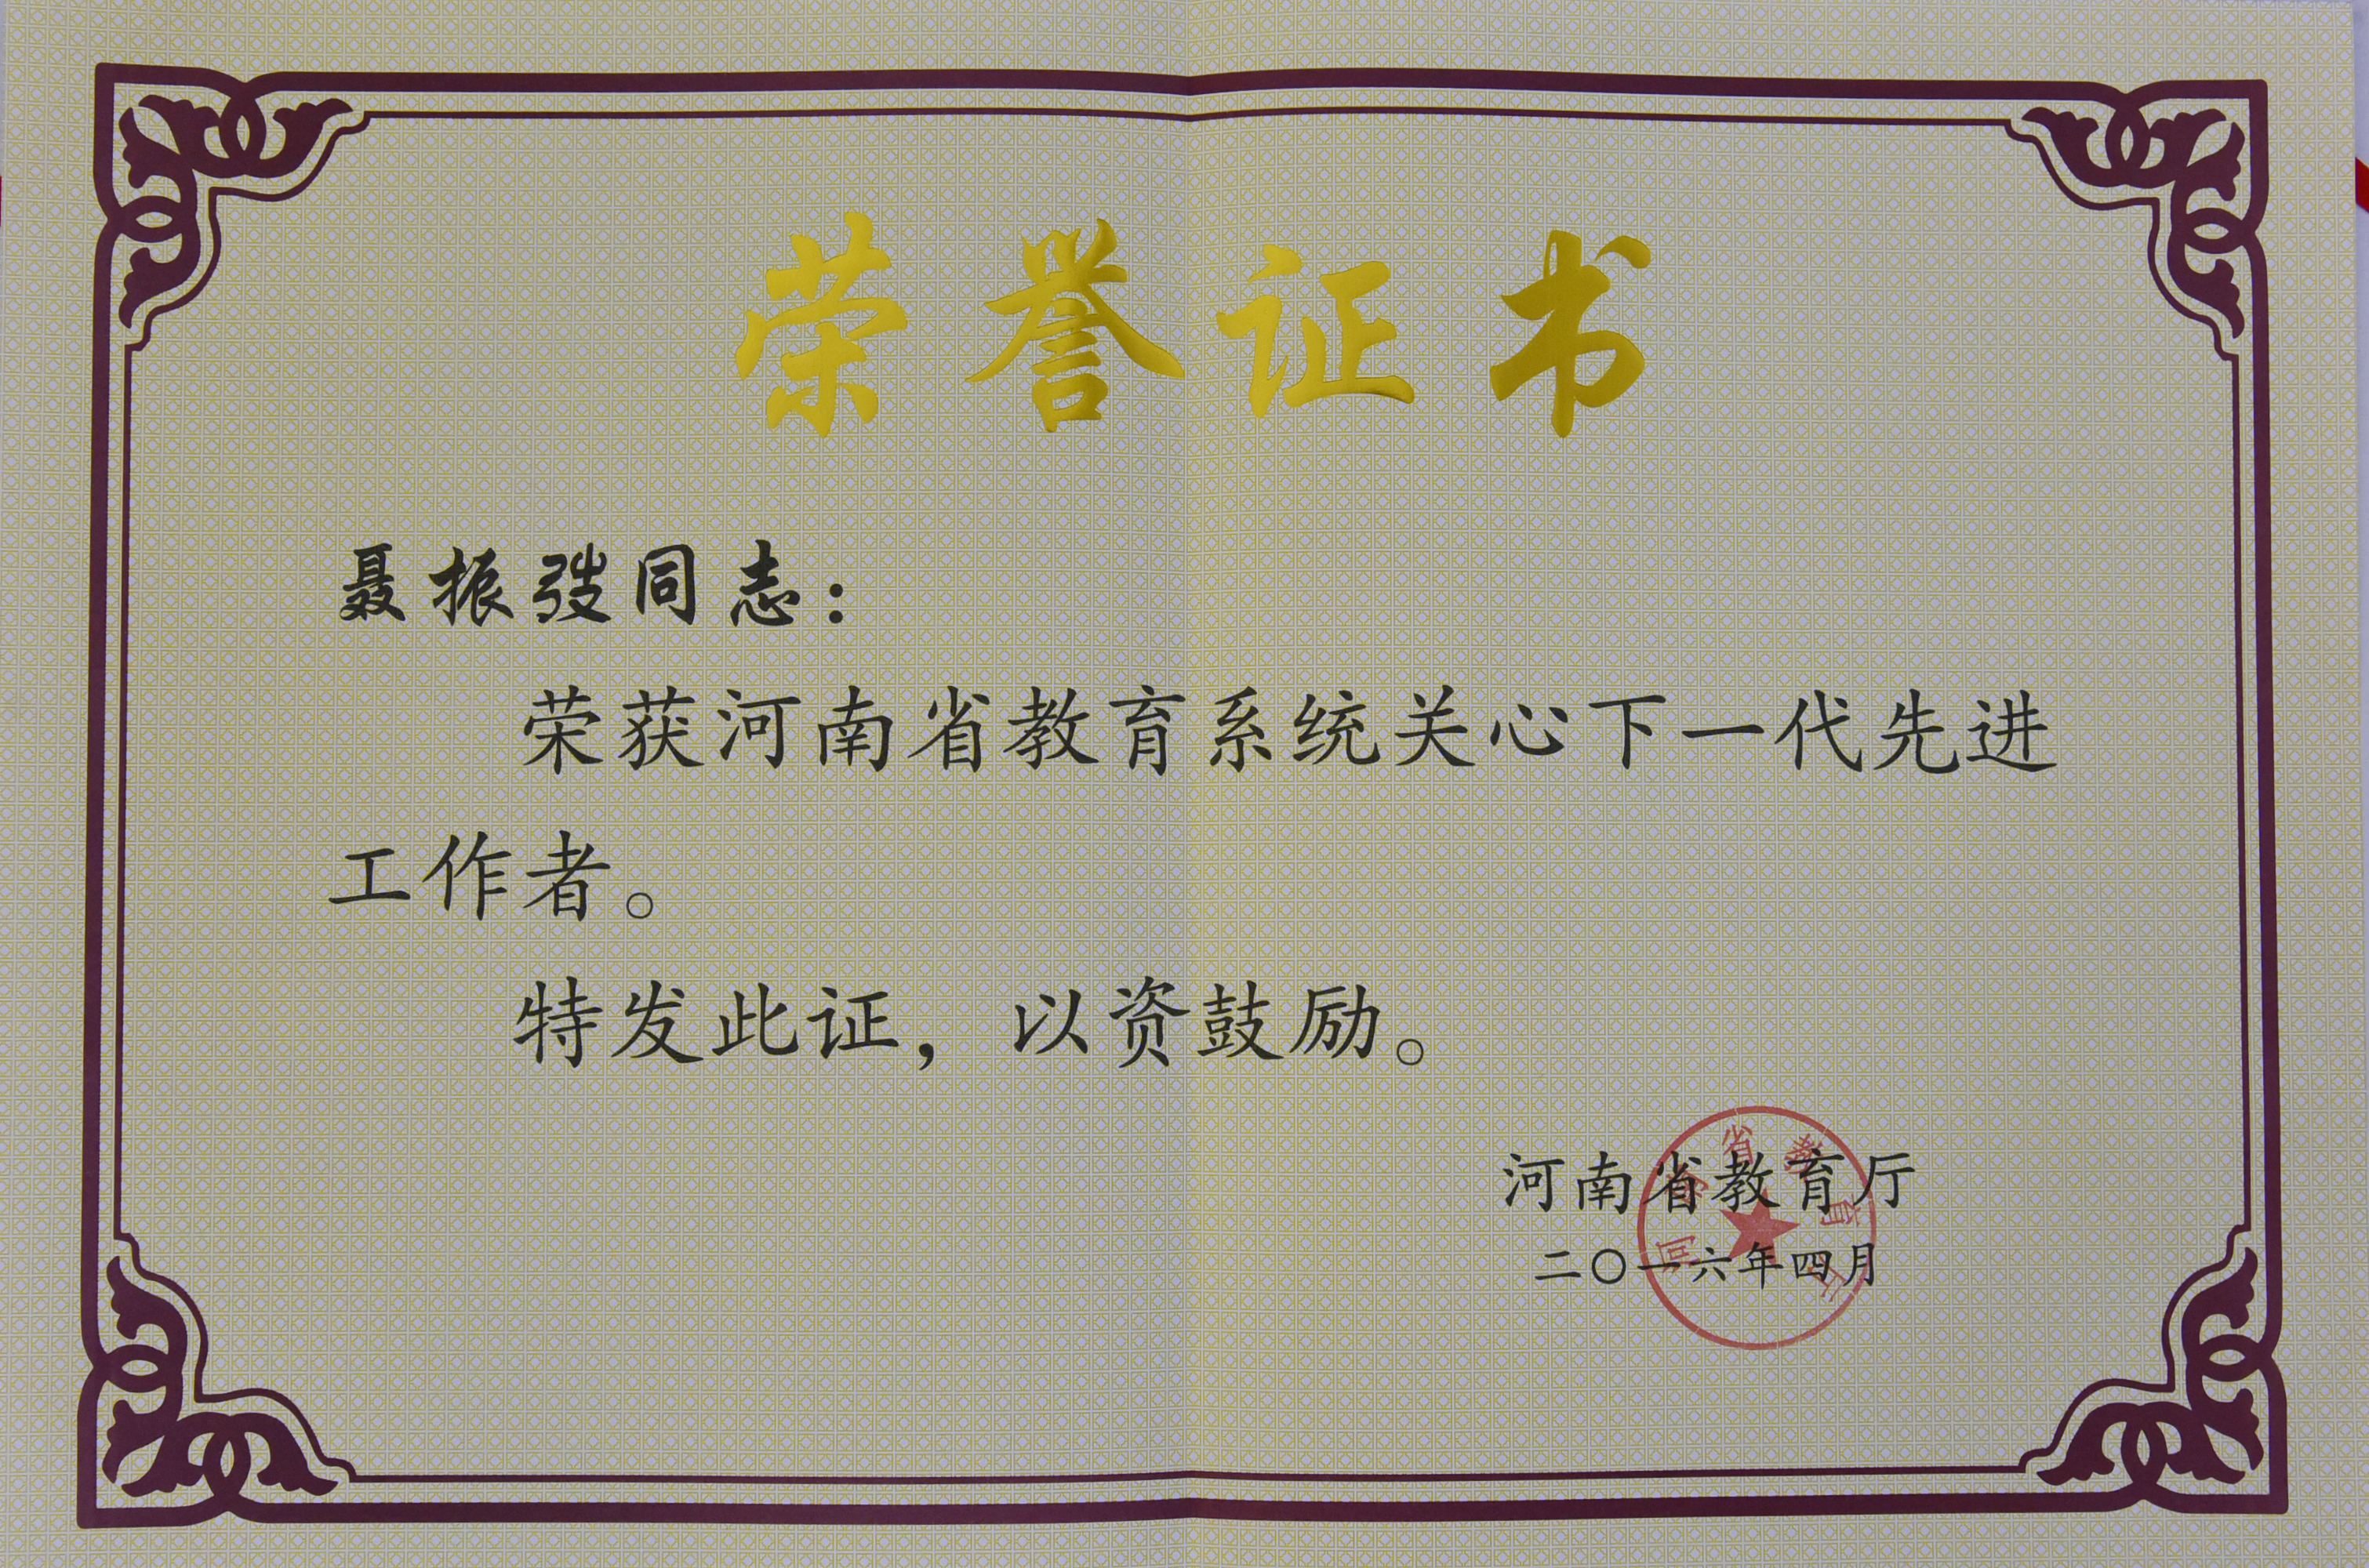 荣誉证书
聂振弢同志：
荣获河南省教育系统关心下一代先进
工作者。
特发此证，以资鼓励。
河南省教育厅
二〇一六年四月
河南省教育厅